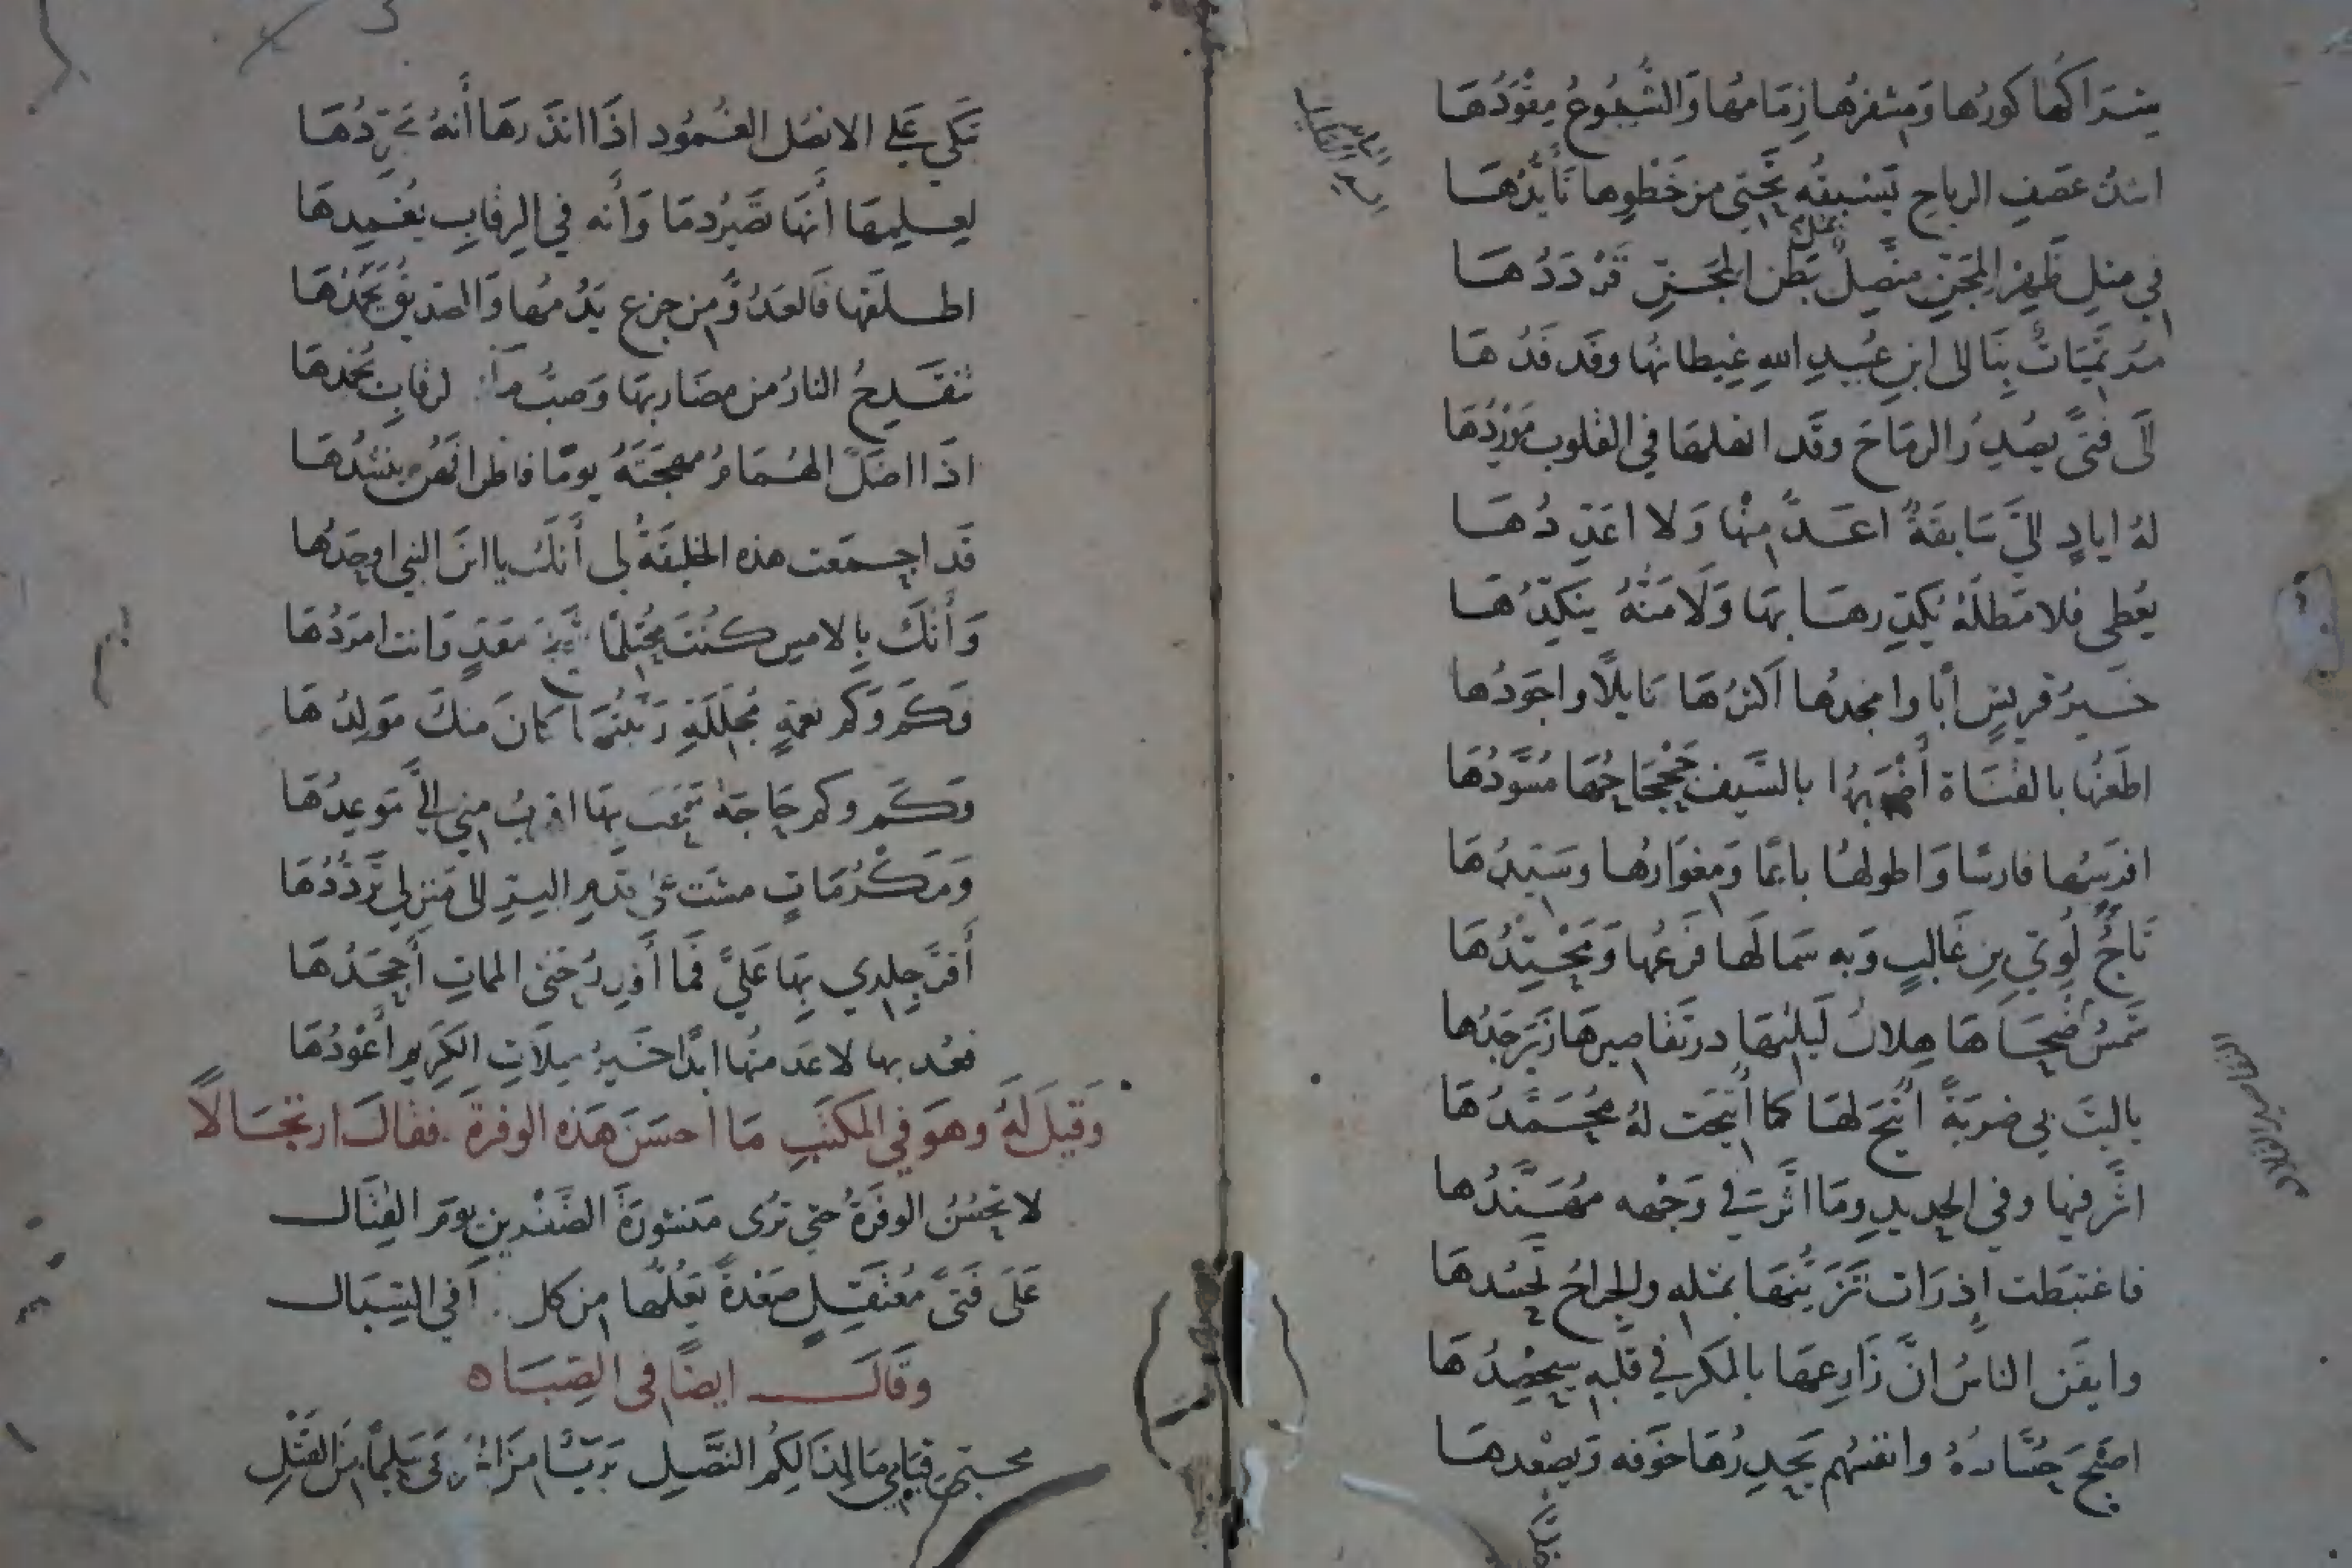 شراكها كورها ومشفرها زمامها والشسوع مقودها
اشد عصف الرياح يسبقه تحتي من خطوها تأيدها
في مثل ظهر المجن متصل بمثل بطن المجن قرددها
مرتميات بنا الى ابن عبيد الله غيطانها وفدفدها
الى فتى يصدر الرماح وقد انهلها في القلوب موردها
له اياد الي سابقة اعد منها ولا اعددها
يعطي فلا مطلة يكدرها بها ولا منة ينكدها
خير قريش أبا وامجدها اكثرها نايلا واجودها
اطعنها بالقناة أضربها بالسيف جحجاحها مسودها
افرسها فارسا واطولها باعا ومغوارها وسيدها
تاج لوي بن غالب وبه سما لها فرعها ومحتدها
شمس ضحاها هلال ليلتها در تقاصيرها زبرجدها
ياليت بي ضربة اتيح لها كما اتيحت له محمدها
اثر فيها وفي الحديد وما اثر في وجهه مهندها
فاغتبطت اذ رات تزينها بمثله والجراح تحسدها
وايقن الناس ان زارعها بالمكر في قلبه سيحصدها
اصبح حساده وانفسهم يحدرها خوفه ويصعدها
تبكي على الانصل الغمود اذا انذرها أنه يجردها
لعلمها أنها تصير دما وأنه في الرقاب يغمدها
اطلقها فالعدو من جزع يذمها والصديق يحمدها
تنقدح النار من مضاربها وصب الرقاب يخمدها
اذا اضل الهمام مهجته يوما فاطرافهن ينشدها
قد اجمعت هذه الخليقة لي أنك يا ابن النبي اوحدها
وأنك بالامس كنت محتلما شيخ معد وانت امردها
وكم وكم نعمة مجللة ربيتها كان منك مولدها
وكم وكم حاجة سمحت بها اقرب مني الي موعدها
ومكرمات مشت على قدم البر الى منزلي ترددها
أقر جلدي بها علي فما أقدر حتى الممات أجحدها
فعد بها لا عدمتها ابدا خير صلات الكريم أعودها
وقيل له وهو في المكتب ما احسن هذه الوفرة فقال ارتجالا
لا تحسن الوفرة حتى ترى منشورة الضفرين يوم القتال
على فتى معتقل صعدة يعلها من كل افي السبال
وقال ايضا في الصباه
محبتي قيامي ما لذالكم النصل بريئا من سليما من القتل